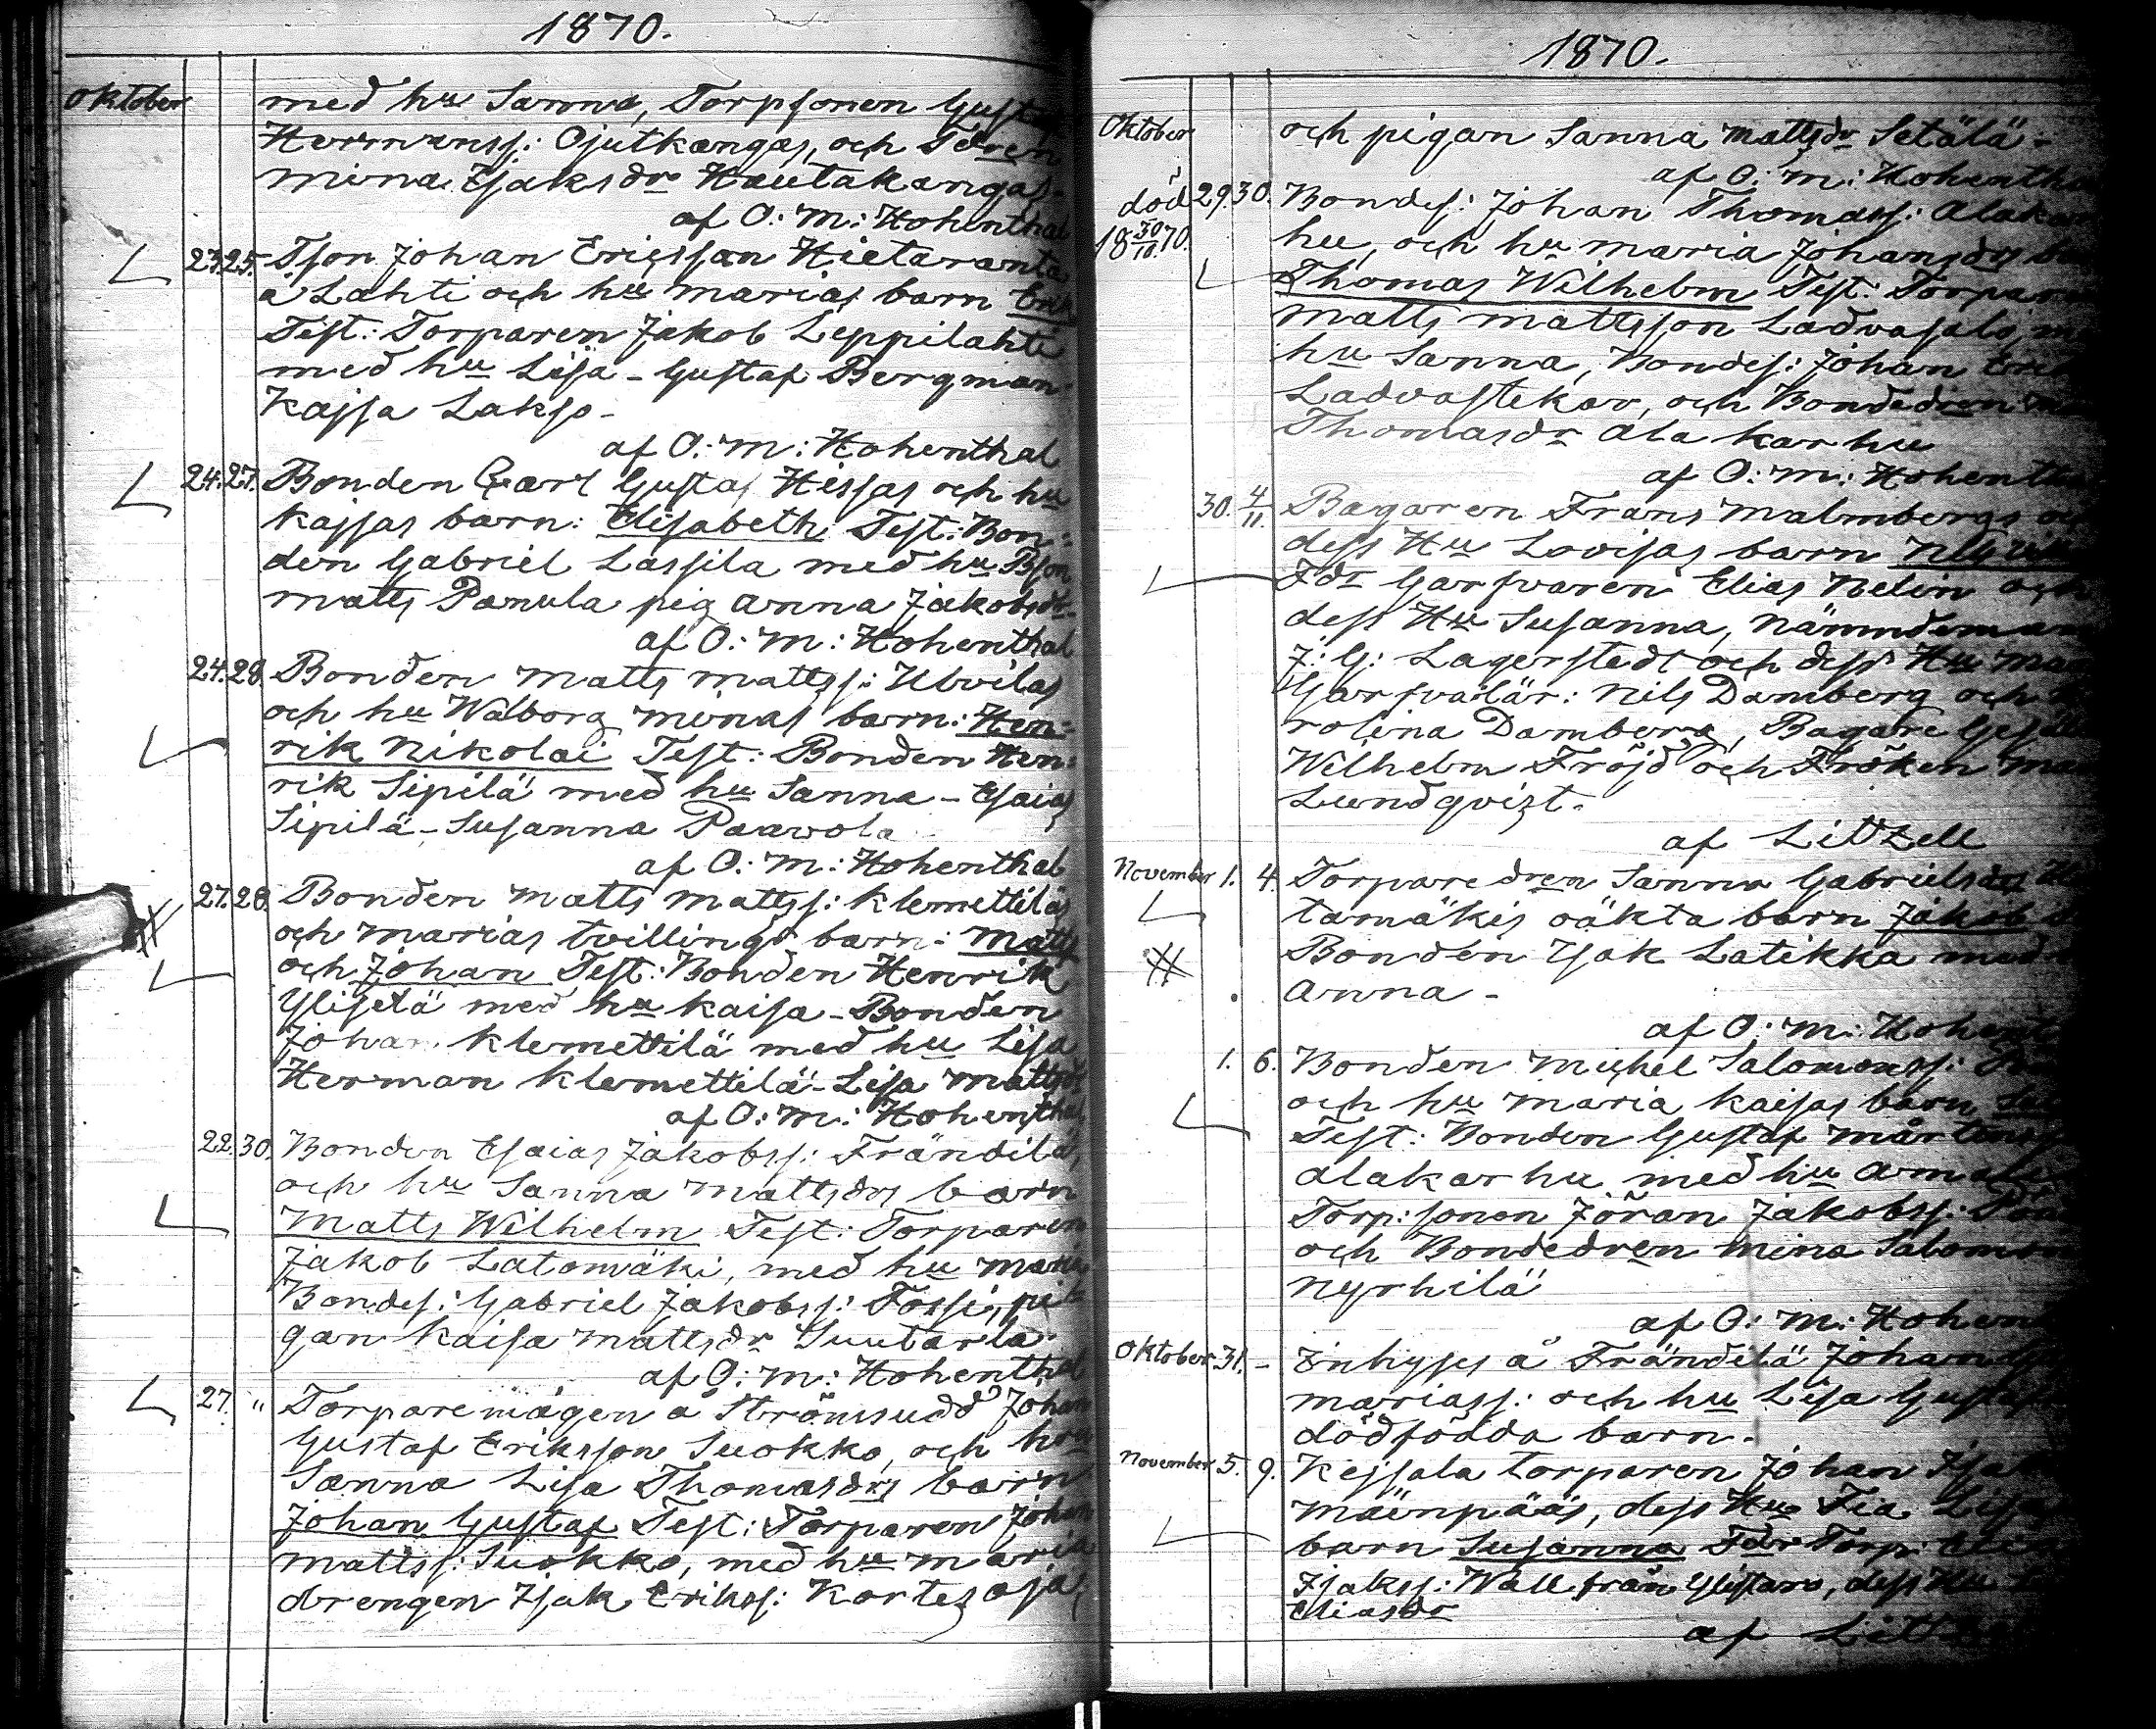 1870.
Oktober
med hu Sanna, Torpsonen Gustaf
Hermanss: Ojutkangas, och Tdren
Mina Isaksdr Hautakangas.
af O: M: Hohenthal
23. 25. Tson Johan Ericsson Hietaranta
å Lahti och hu Marias barn Erik
Test: Torparen Jakob Leppilahti
med hu Lisa - Gustaf Bergman
Kajsa Lakso -
af O: M: Hohenthal
24. 27. Bonden Carl Gustaf Hissas och hu
Kajsas barn: Elisabeth Test: Bon-
den Gabriel Lassila med hu Bson
Matts Panula pig Anna Jakobsdr
af O: M: Hohenthal
24. 28. Bonden Matts Mattss:
och hu Waborg Minas barn: Hen-
rik Nikolai Test: Bonden Hen-
rik Sipilä med hu Sanna - Esaias
Sipilä - Susanna Paavola
af O: M: Hohenthal
27. 28. Bonden Matts Mattss: Klemettiläs
och Marias tvillings barn: Matts
och Johan Test: Bonden Henrik
Ylisetä med hu Kaisa - Bonden
Johan Klemettilä med hu Lisa
Herman Klemettilä - Lisa Mattsdr
af O: M: Hohenthal
22. 30. Bonden Esaias Jakobss: Frändilä,
och hu Sanna Mattsdrs barn
Matts Wilhelm Test: Torparen
Jakob Latomäki, med hu Maria
Bondes: Gabriel Jakobss: Fossi, pi-
gan Kaisa Mattsdr Suutarla
af O: M: Hohenthal
27. " Torparemågen å Strömsudd Johan
Gustaf Eriksson Suokko, och hu
Sanna Lisa Thomasdrs barn
Johan Gustaf Test: Torparen Johan
Mattss: Suokko, med hu Maria
drengen Isak Erikss: Kortesoja,
1870.
Oktober
och pigan Sanna Mattsdr Setälä -
af O: M: Hohentha
död 18 30/10 70.
29. 30. Bondes: Johan Thomass: Alakar
hu, och hu Maria Johansdrs
Thomas Wilhelm Test: Torparen
Matts Mattsson Ladvasalo,
hu Sanna, Bondes: Johan Erik
Ladvastekav, och Bondedren
Thomasdr Ala karhu
af O: M: Hohentha
30. 4/11. Bagaren Frans Malmbergs
dess Hu Lovisas barn
Fdr Garfvaren Elias Nelin och
dess Hu Susanna, Nämndeman
J: G: Lagerstedt och dess Hu
Garfvarlär: Nils Damberg och
rolina Damberg, Bagare
Wilhelm Fröjd och Fröken
Lundqvist.
af Litzell
November 1. 4. Torparedren Sanna Gabrielsdrs
tamäkis oäkta barn Jakob
Bonden Isak Latikka med
Anna -
af O: M: Hohent
1. 6. Bonden Michel Salomonss:
och hu Maria Kaisas barn
Test: Bonden Gustaf Mårtens
Alakarhu med hu
Torp: sonen Jöran Jakobss:
och Bondedren Mina Salomons
Nyrhilä
af O: M: Hohen
Oktober 31. - Inhyses å Frändilä Johan
mariass: och hu Lisa Gustaf
dödfödda barn.
November 5. 9. Kejsala torparen Johan Isak
Mäenpääs, dess Hu Fia Lisas
barn Susanna Fdr Torp:
Isakss: Wall från Ylistaro, dess Hu
Eliasdr
af Litt